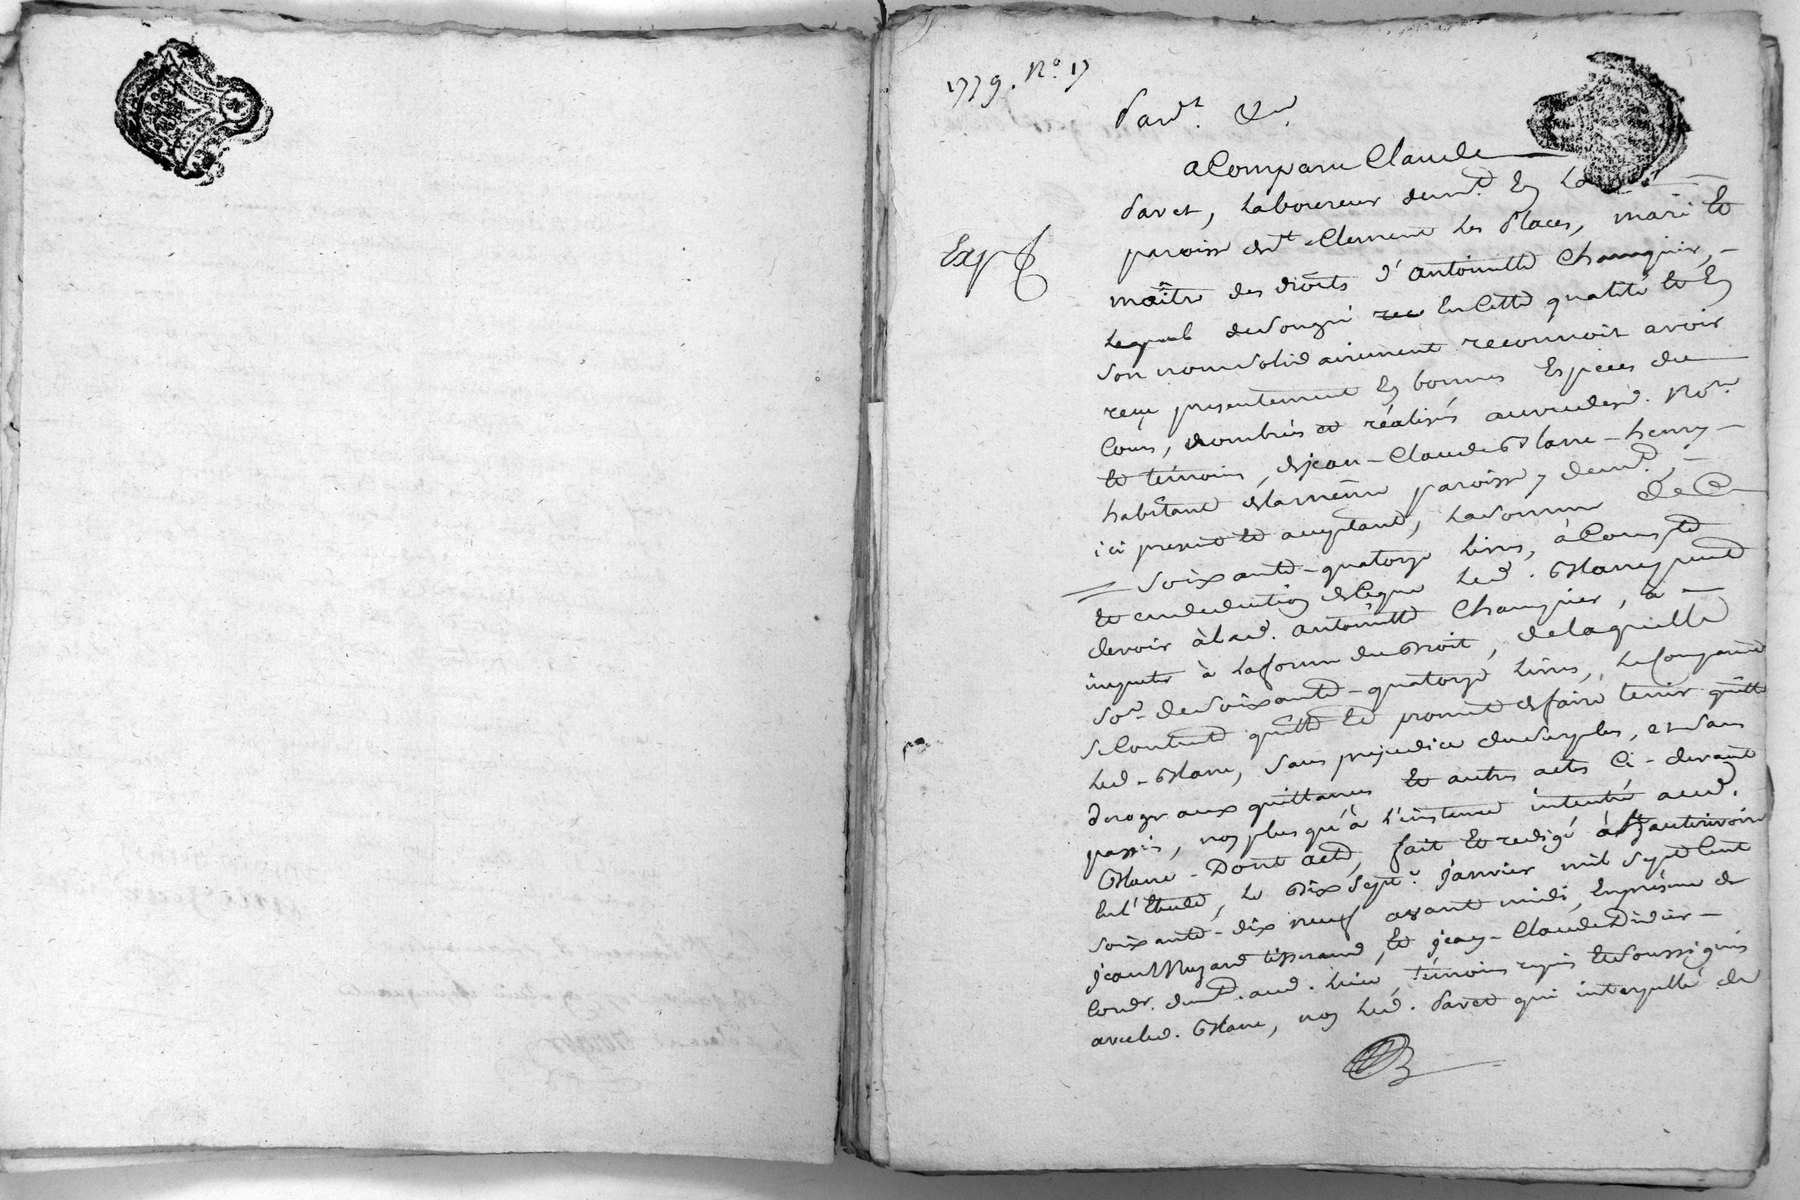 1779. No. 17
Pardt. &c.
a Comparu Claude
Pavet, Laboureur demt. En La
paroisse de st. Clement Les Places, mari Et
Exp
maître des droits d'antoinette Chanquier,
Lequel de son gré En Cette qualité Et En
son nom solidairement reconnoit avoir
reçu presentement En bonnes Especes du
Cours, nombrées et réalisées au vu desd. Nore.
Et témoins, de jean-Claude Blanc-henry
habitant de la même paroisse, demt.
ici present Et acceptant, La somme de
soixante-quatorze Livres, à Compte
Et en deduction de Ce que Led. Blanc peut
devoir à Lad. antoinette Chanquier, à
imputer à La forme du Droit, de laquelle
soe. de soixante-quatorze Livres, Le Comparant
se Contente quitte Et promet de faire tenir quitte
Led. Blanc, sans prejudice du surplus, et sans
deroger aux quittances Et autres actes Ci-devant
passés, non plus qu'à L'instance intentée aud.
Blanc - Dont acte, fait Et redigé à hauterivoire
En L'Etude, Le Dix Sept. janvier mil Sept Cent
soixante-dix neuf avant midi, En présence de
jean Muzard tisserand, Et jean-Claude Didier
Cordr. demt. aud. Lieu témoins requis Et soussignés
avec led. Blanc, non Led. Pavet qui interpellé de